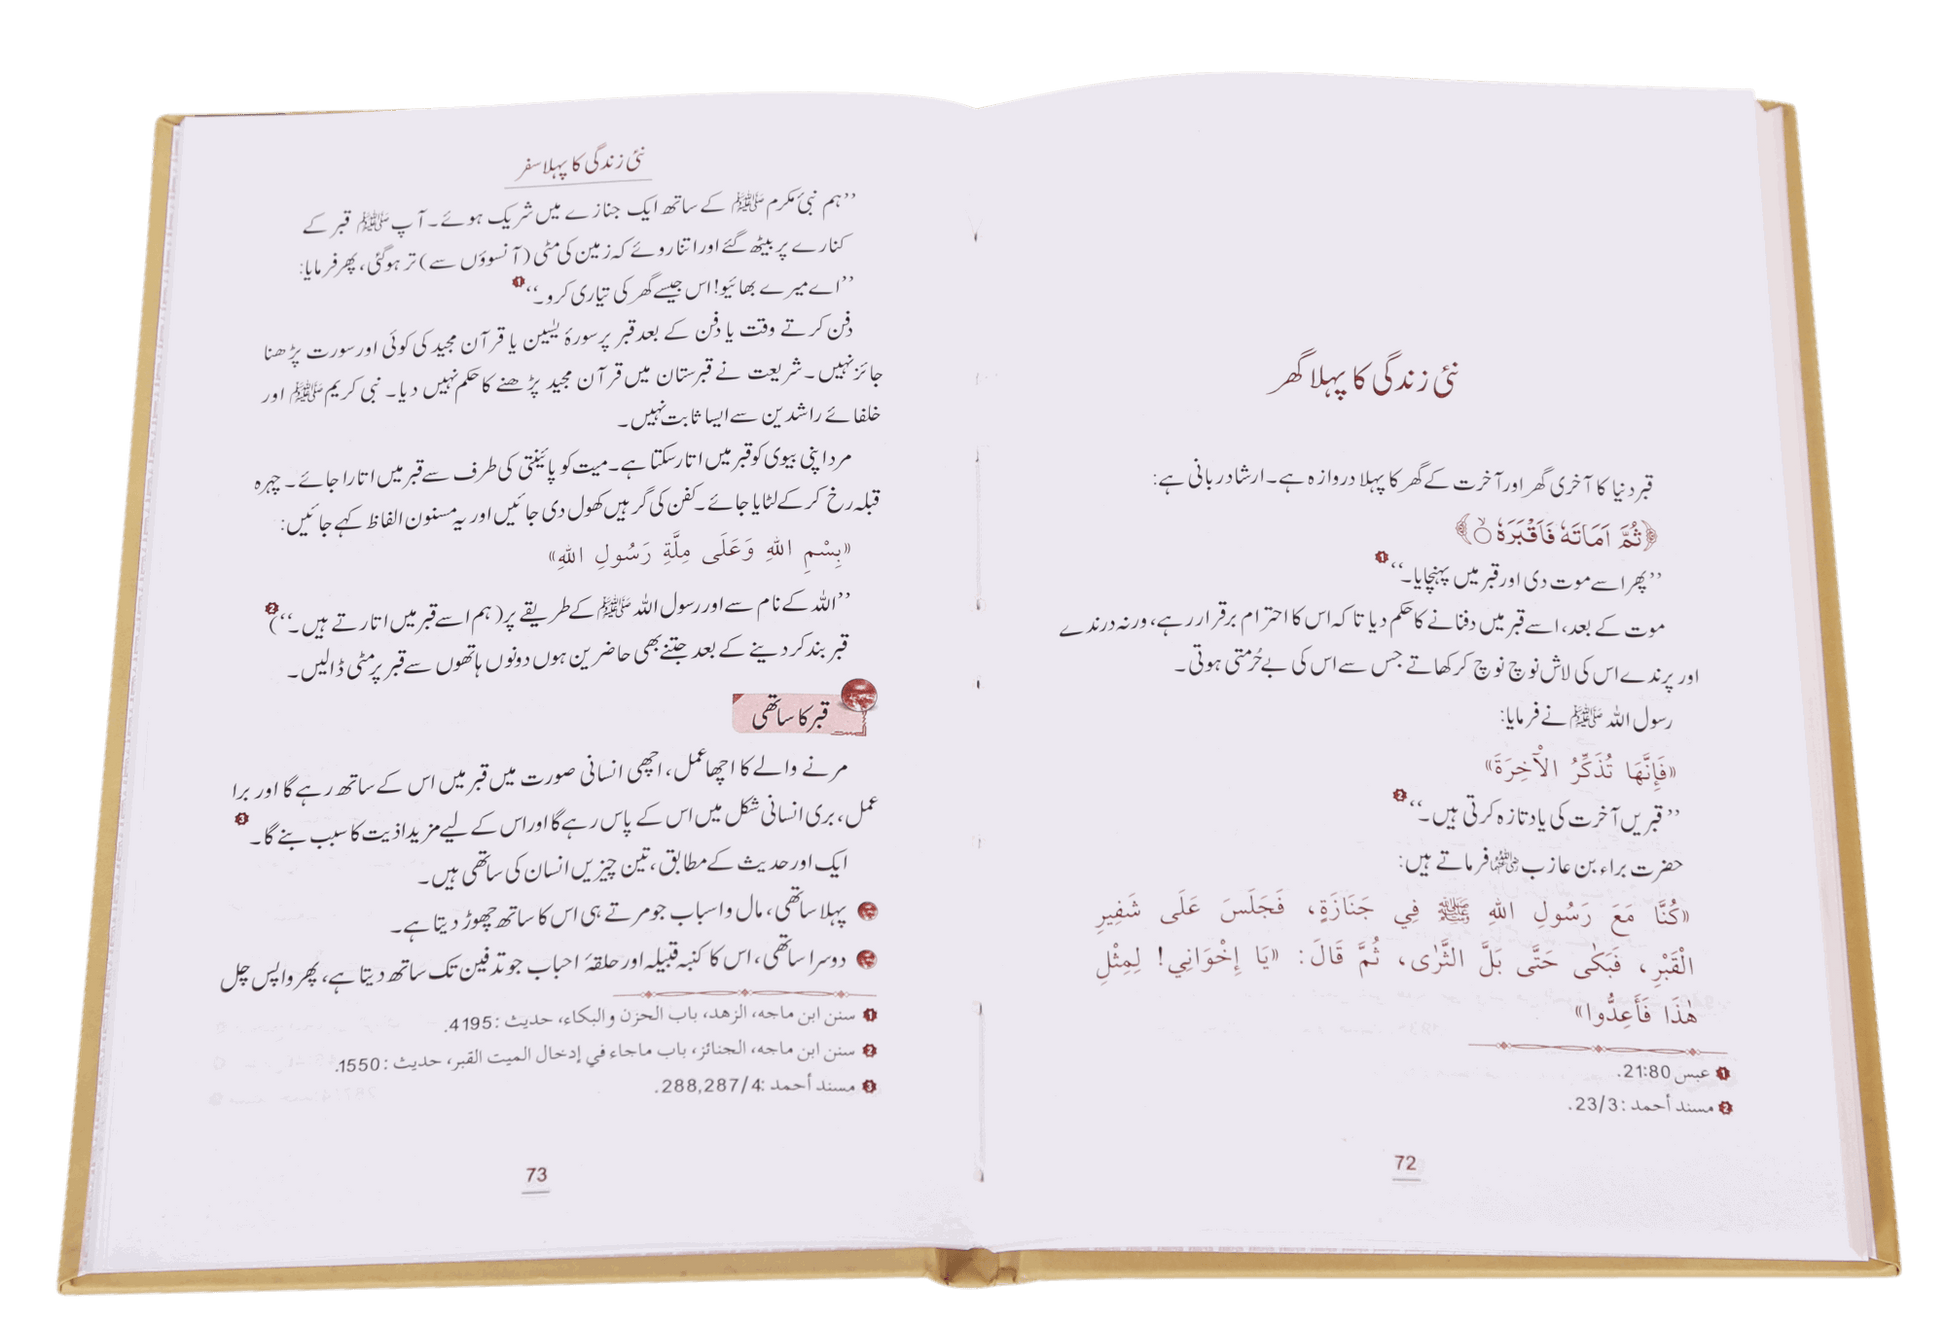 نئی زندگی کا پہلا گھر
قبر دنیا کا آخری گھر اور آخرت کے گھر کا پہلا دروازہ ہے۔ ارشاد ربانی ہے:
﴿ثُمَّ اَمَاتَهٗ فَاَقْبَرَهٗ ۝﴾
’’پھر اسے موت دی اور قبر میں پہنچایا۔‘‘ 1
موت کے بعد، اسے قبر میں دفنانے کا حکم دیا تاکہ اس کا احترام برقرار رہے، ورنہ درندے
اور پرندے اس کی لاش نوچ نوچ کر کھاتے جس سے اس کی بے حُرمتی ہوتی۔
رسول اللہ ﷺ نے فرمایا:
«فَإِنَّهَا تُذَكِّرُ الْآخِرَةَ»
’’قبریں آخرت کی یاد تازہ کرتی ہیں۔‘‘ 2
حضرت براء بن عازب رضی اللہ عنہما فرماتے ہیں:
«كُنَّا مَعَ رَسُولِ اللهِ ﷺ فِي جَنَازَةٍ، فَجَلَسَ عَلَى شَفِيرِ
الْقَبْرِ، فَبَكٰى حَتَّى بَلَّ الثَّرٰى، ثُمَّ قَالَ: «يَا إِخْوَانِي! لِمِثْلِ
هٰذَا فَأَعِدُّوا»
1 عبس 21:80.
2 مسند أحمد: 23/3.
72
نئی زندگی کا پہلا سفر
’’ہم نبیٔ مکرم ﷺ کے ساتھ ایک جنازے میں شریک ہوئے۔ آپ ﷺ قبر کے
کنارے پر بیٹھ گئے اور اتنا روئے کہ زمین کی مٹی (آنسوؤں سے) تر ہوگئی، پھر فرمایا:
’’اے میرے بھائیو! اس جیسے گھر کی تیاری کرو۔‘‘ 1
دفن کرتے وقت یا دفن کے بعد قبر پر سورۂ یٰسین یا قرآن مجید کی کوئی اور سورت پڑھنا
جائز نہیں۔ شریعت نے قبرستان میں قرآن مجید پڑھنے کا حکم نہیں دیا۔ نبی کریم ﷺ اور
خلفائے راشدین سے ایسا ثابت نہیں۔
مرد اپنی بیوی کو قبر میں اتار سکتا ہے۔ میت کو پائینتی کی طرف سے قبر میں اتارا جائے۔ چہرہ
قبلہ رخ کر کے لٹایا جائے۔ کفن کی گرہیں کھول دی جائیں اور یہ مسنون الفاظ کہے جائیں:
«بِسْمِ اللهِ وَعَلَى مِلَّةِ رَسُولِ اللهِ»
’’اللہ کے نام سے اور رسول اللہ ﷺ کے طریقے پر (ہم اسے قبر میں اتارتے ہیں۔‘‘) 2
قبر بند کر دینے کے بعد جتنے بھی حاضرین ہوں دونوں ہاتھوں سے قبر پر مٹی ڈالیں۔
قبر کا ساتھی
مرنے والے کا اچھا عمل، اچھی انسانی صورت میں قبر میں اس کے ساتھ رہے گا اور برا
عمل، بری انسانی شکل میں اس کے پاس رہے گا اور اس کے لیے مزید اذیت کا سبب بنے گا۔ 3
ایک اور حدیث کے مطابق، تین چیزیں انسان کی ساتھی ہیں۔
پہلا ساتھی، مال و اسباب جو مرتے ہی اس کا ساتھ چھوڑ دیتا ہے۔
دوسرا ساتھی، اس کا کنبہ قبیلہ اور حلقۂ احباب جو تدفین تک ساتھ دیتا ہے، پھر واپس چل
1 سنن ابن ماجه، الزهد، باب الحزن والبكاء، حديث: 4195.
2 سنن ابن ماجه، الجنائز، باب ماجاء في إدخال الميت القبر، حديث: 1550.
3 مسند أحمد: 288,287/4.
73